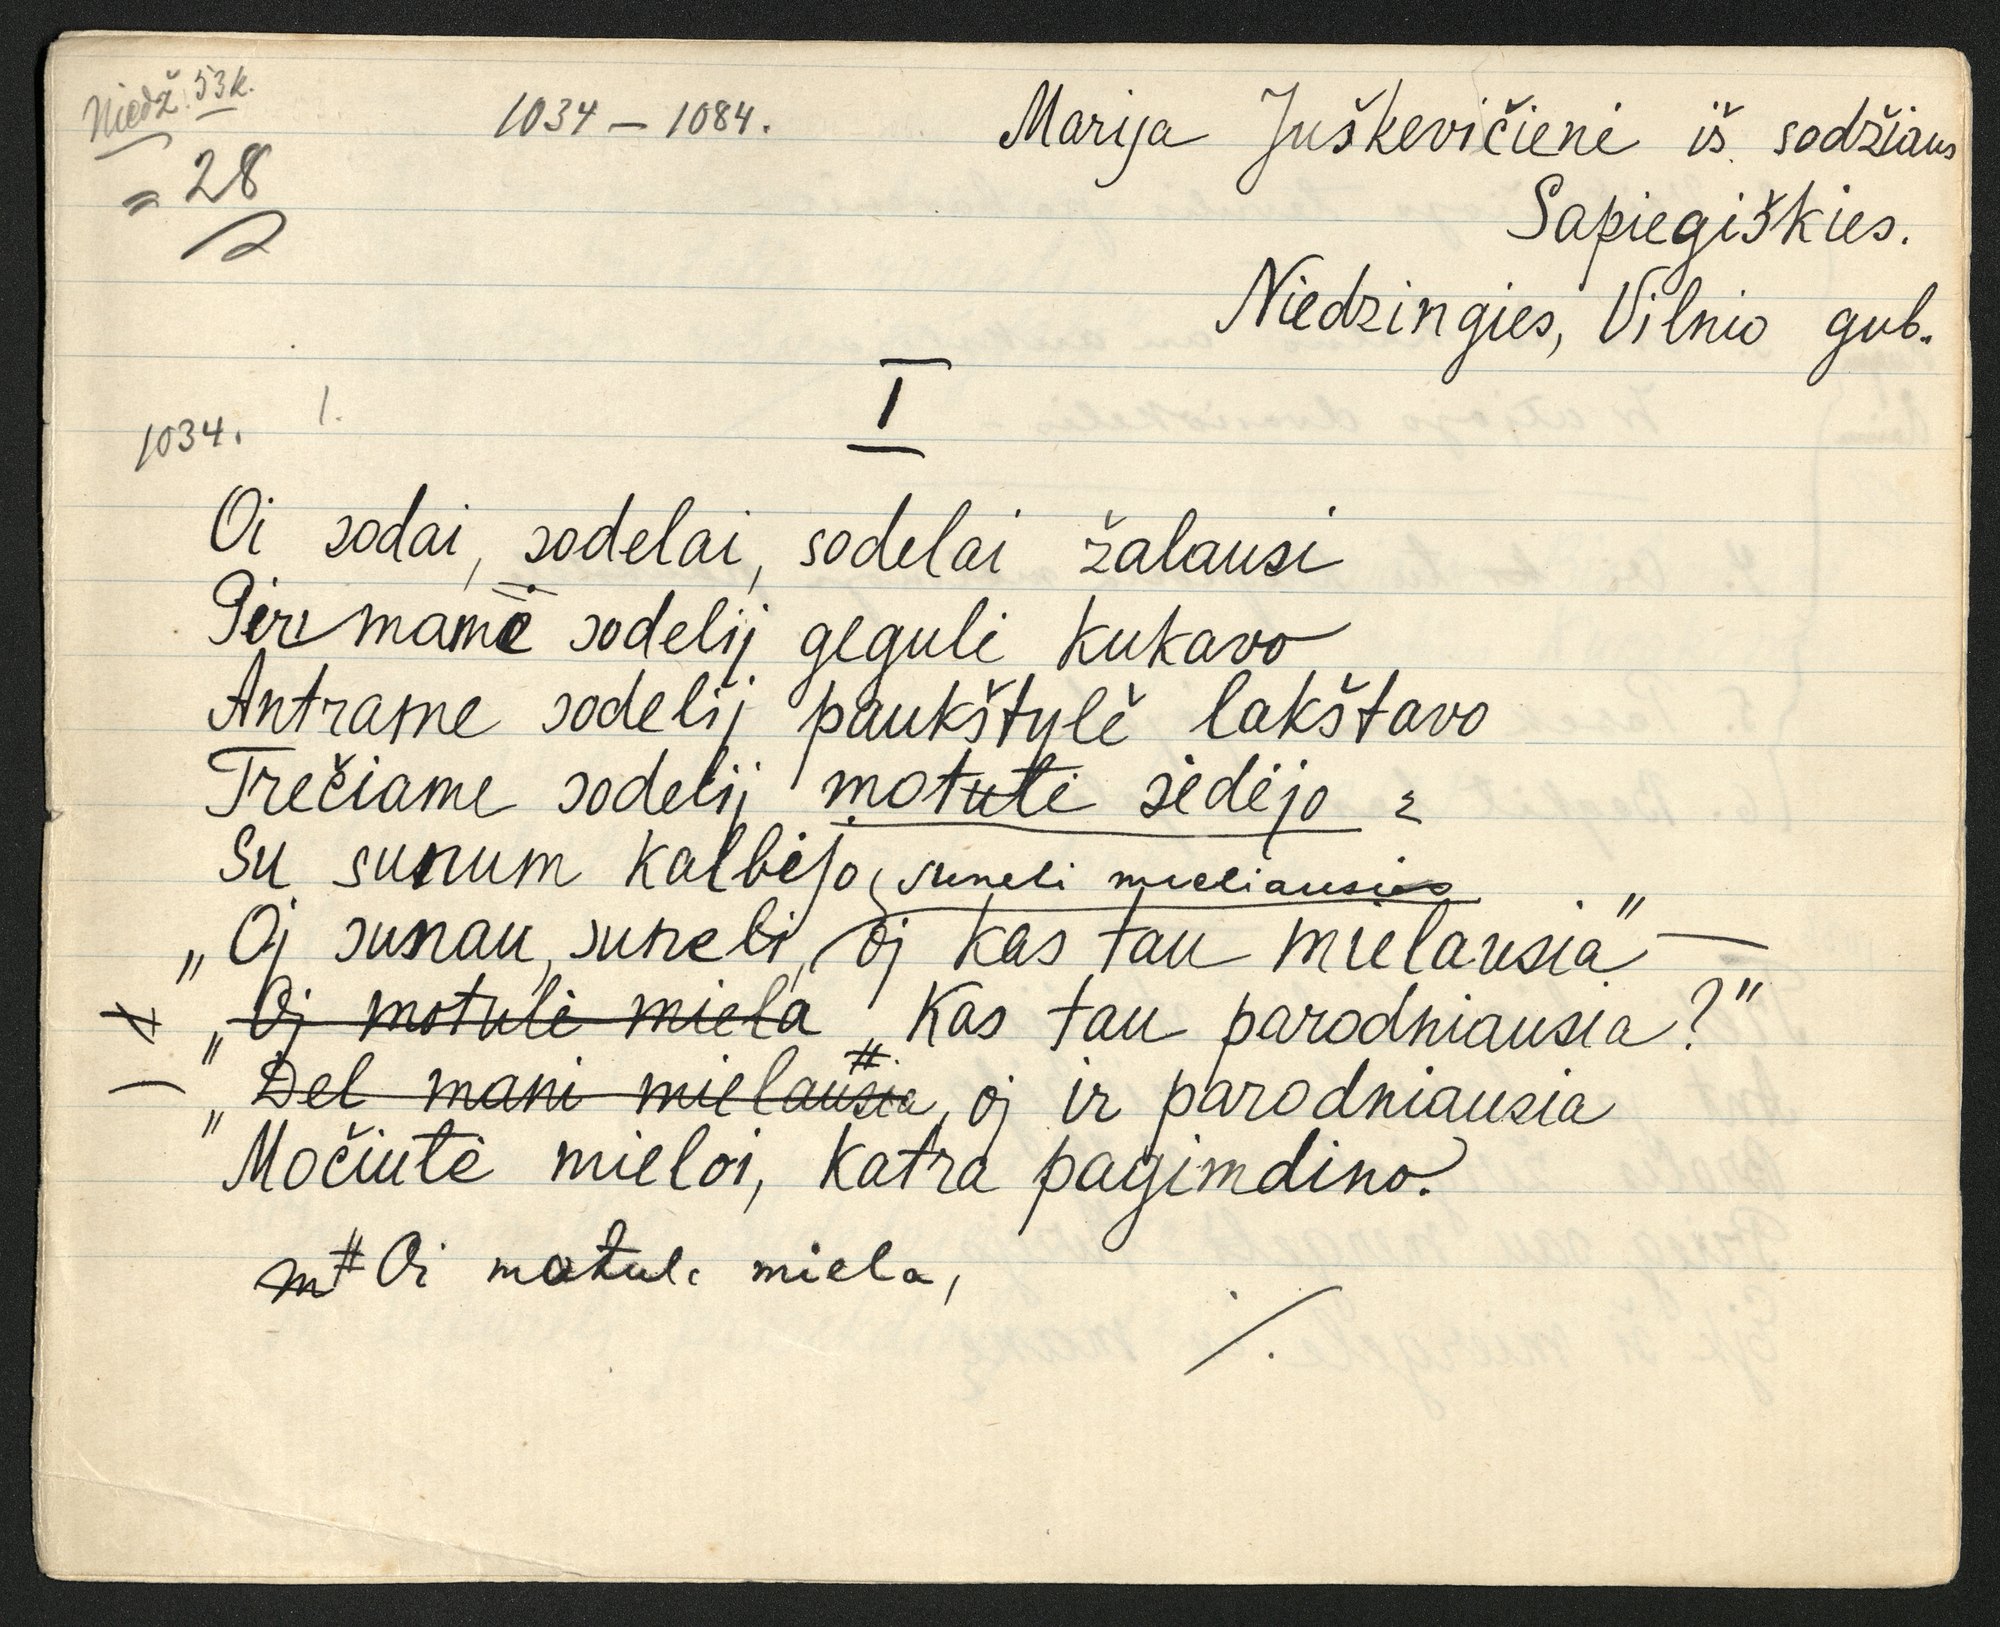 Niedž. 53k.
28
1034 – 1084.
Marija Juškevičienė iš sodžiaus
Sapiegiškies.
Niedzingies, Vilnio gub.
I
1034. 1.
Oi sodai, sodelai, sodelai žalausi
Pirmame sodelij gegulė kukavo
Antrame sodelij paukštylė lakštavo
Trečiame sodelij motutė sėdėjo
Su sunum kalbėjo, suneli mieliausias
„Oj sunau, suneli, oj kas tau mielausia” —
„Oj motulė miela „Kas tau parodniausia?”
— „Del mani mielausia, oj ir parodniausia
Močiutė mieloi, katra pagimdino.
# Oi motule miela,